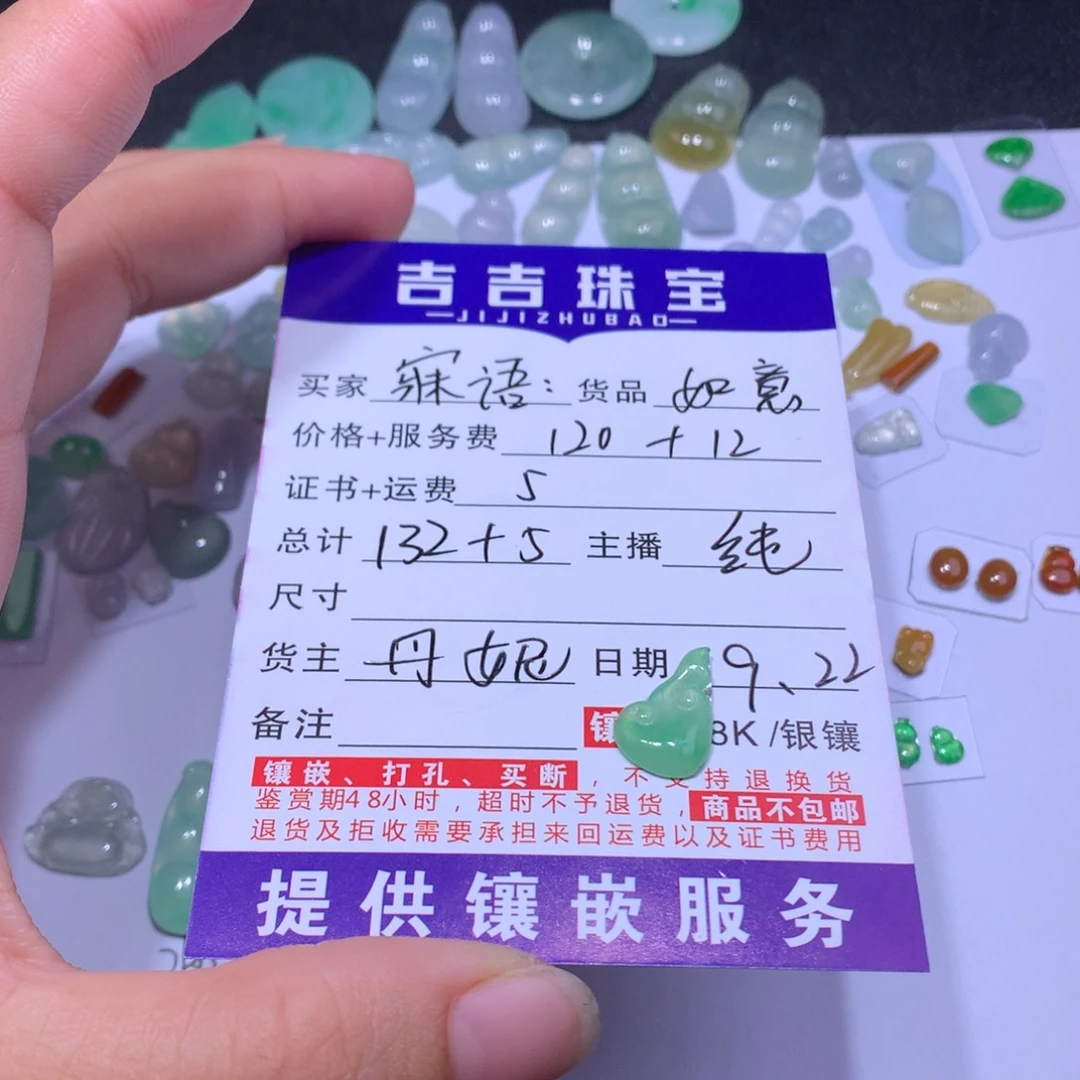 吉吉珠宝
JIJIZHUBAO
买家 寐语: 货品 如意
价格+服务费 120+12
证书+运费 5
总计 132+5 主播 纯
尺寸
货主 丹妮 日期 9、22
备注 镶 8K /银镶
镶嵌、打孔、买断,不支持退换货
鉴赏期48小时,超时不予退货,商品不包邮
退货及拒收需要承担来回运费以及证书费用
提供镶嵌服务